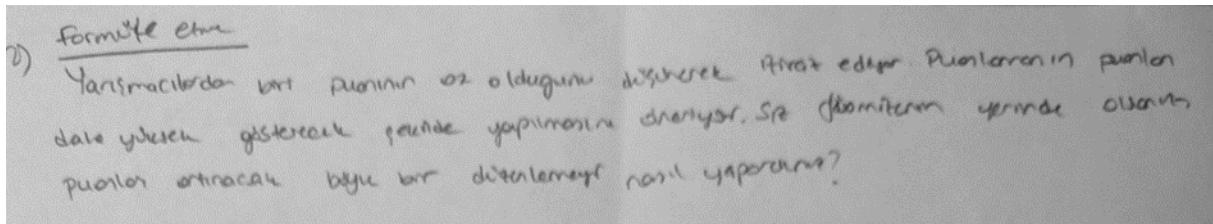 2) Formüle etme
Yarışmacılardan biri puanının az olduğunu düşünerek itiraz ediyor. Puanlamanın puanları
daha yüksek gösterecek şekilde yapılmasını öneriyor. Siz yerinde olsanız
puanları artıracak böyle bir düzenlemeyi nasıl yapardınız?